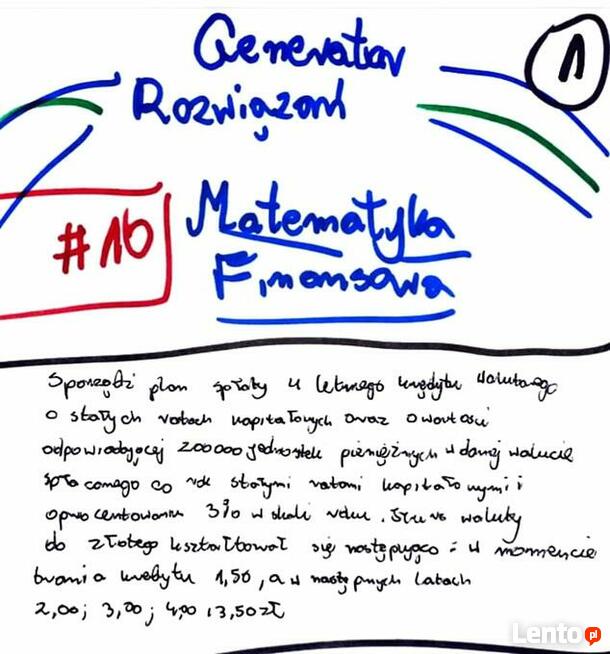 Generator
Rozwiązań
1
#16
Matematyka
Finansowa
Sporządź plan spłaty 4 letniego kredytu walutowego
o stałych ratach kapitałowych oraz o wartości
odpowiadającej 200000 jednostek pieniężnych w danej walucie
spłacanego co rok stałymi ratami kapitałowymi i
oprocentowaniu 3% w skali roku. Kurs waluty
do złotego kształtował się następująco: w momencie
brania kredytu 1,50, a w następnych latach
2,00; 3,00; 4,00 i 3,50 zł
Lento.pl